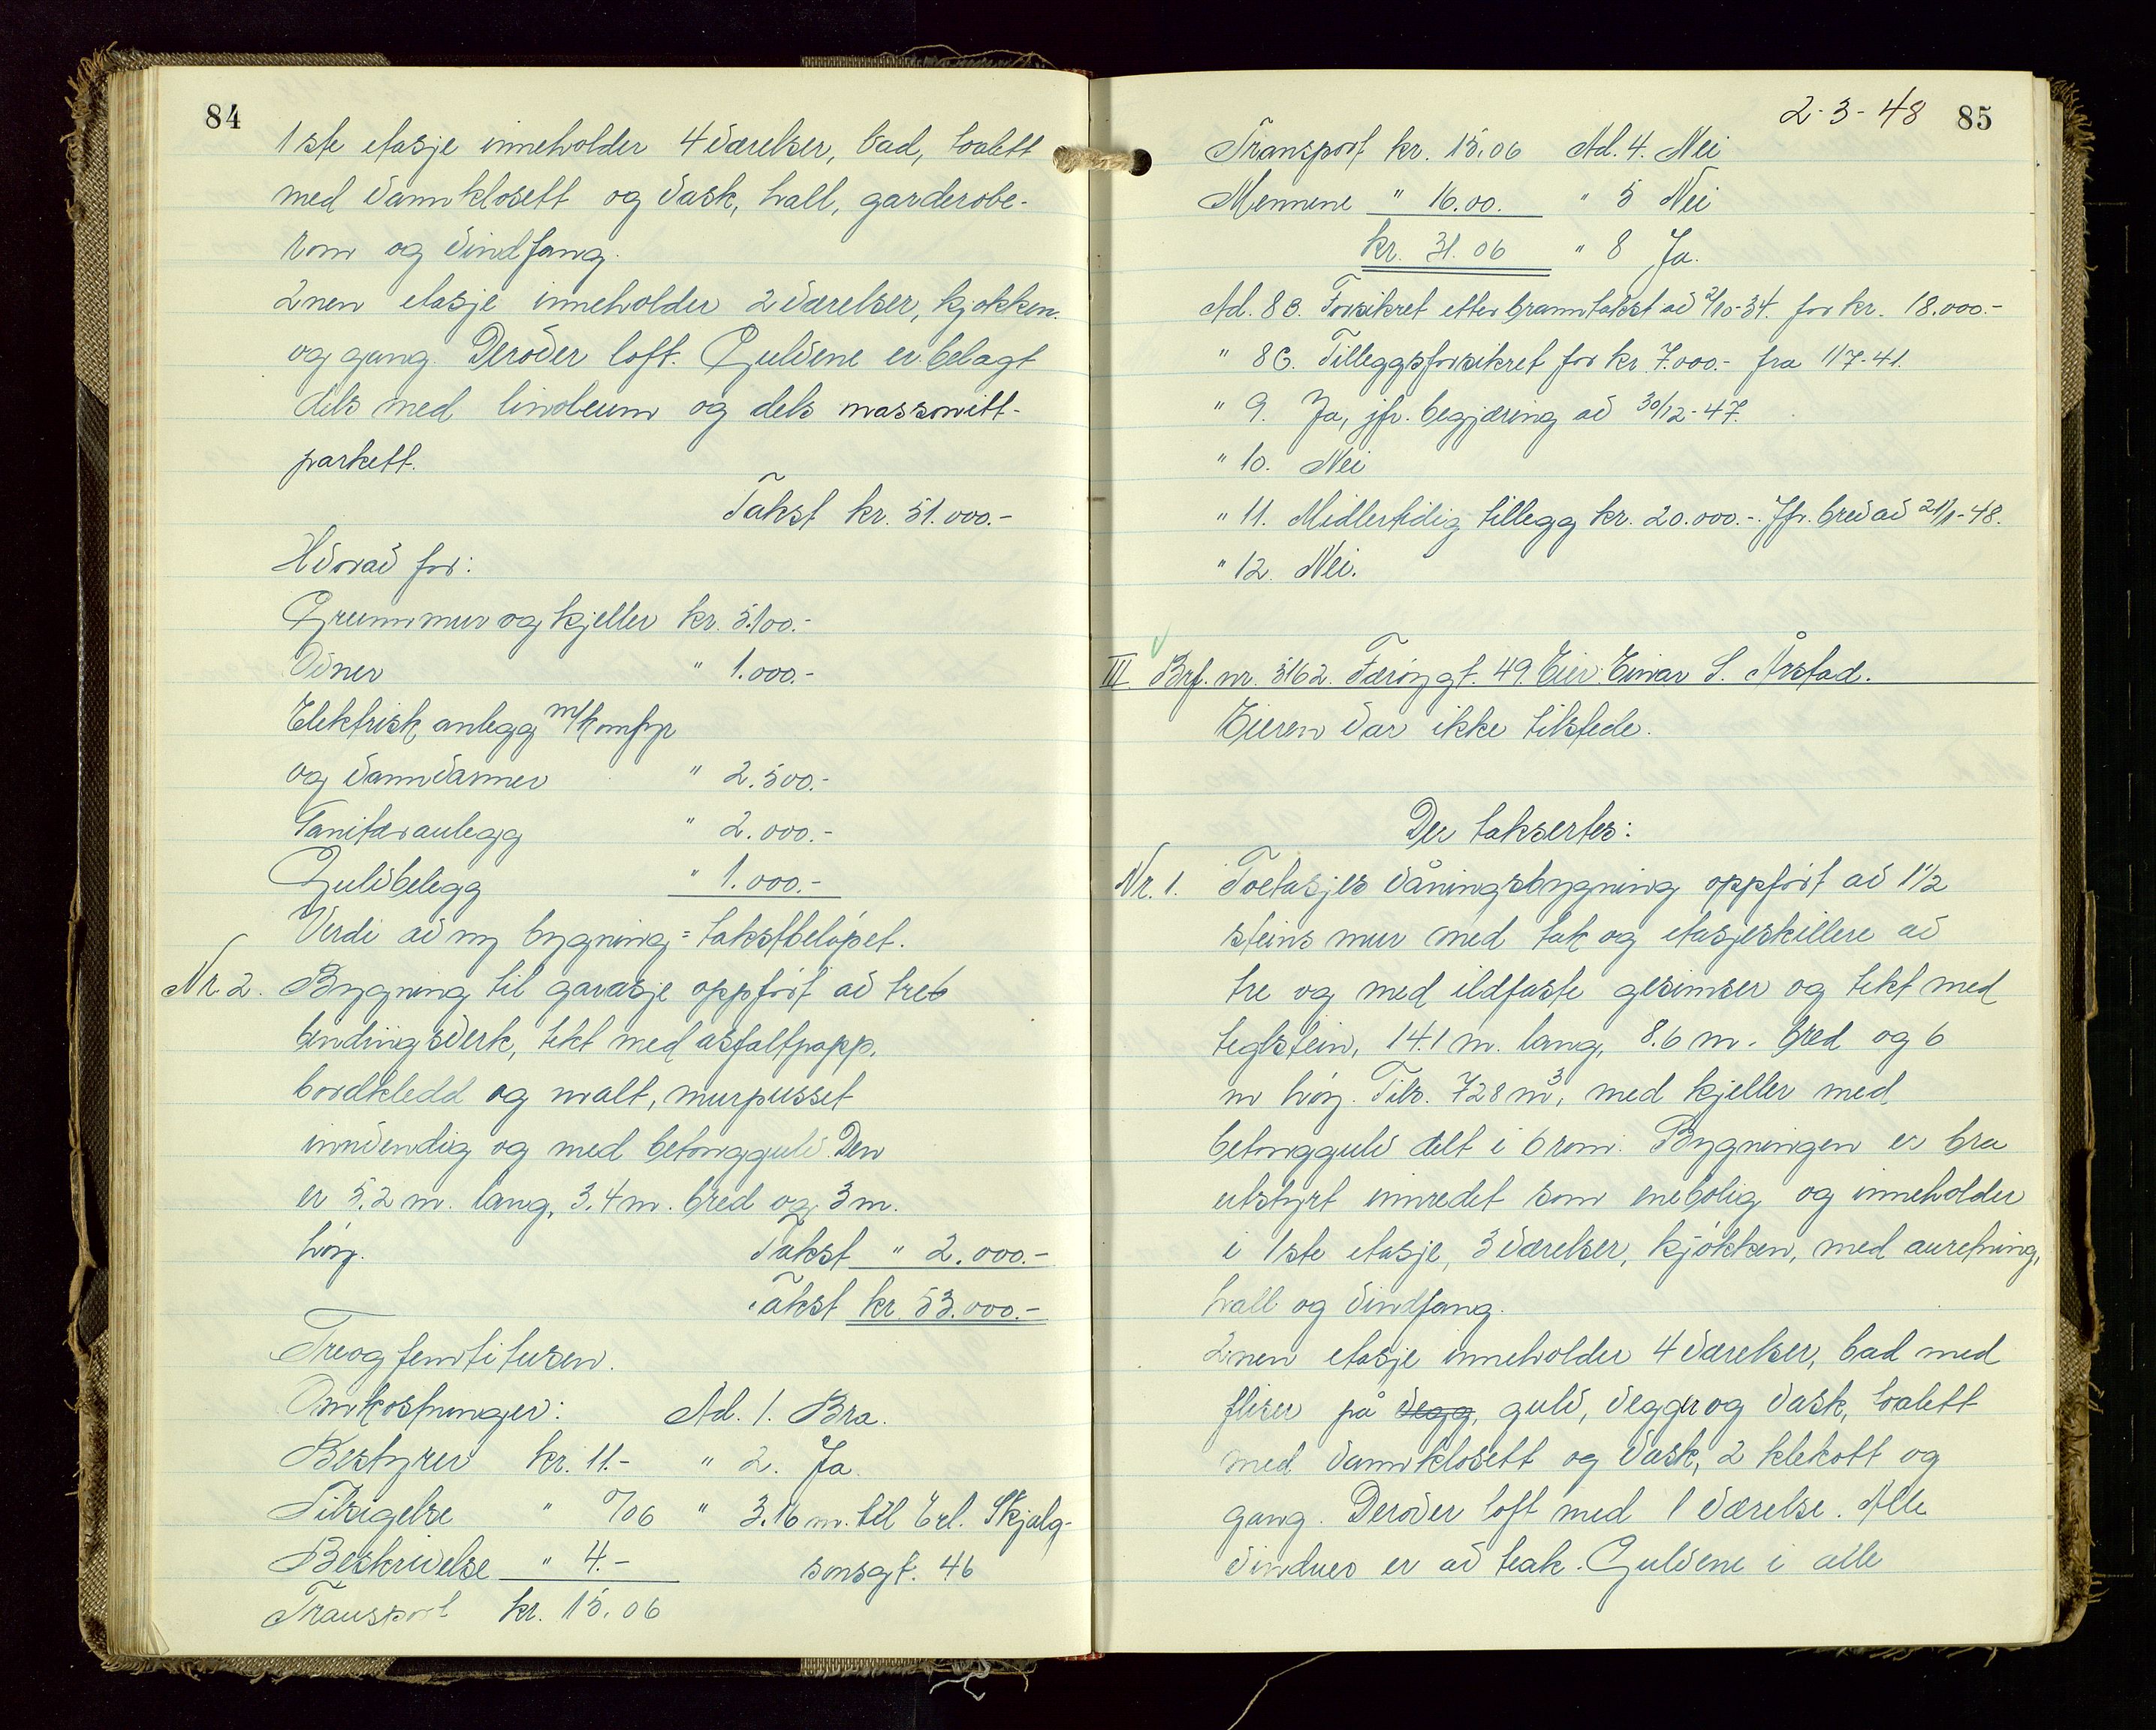 84
1ste etasje inneholder 4 værelser, bad, toalett
med vannklosett og vask, hall, garderobe-
rom og vindfang.
2nen etasje inneholder 2 værelser, kjøkken
og gang. Derover loft. Gulvene er belagt
dels med linoleum og dels massonitt-
parkett.
Takst kr. 51.000.-
Hvorav for:
Grunnmur og kjeller kr. 5.100.-
Ovner " 1.000.-
Elektrisk anlegg m/komfyr
og vannvarmer " 2.500.-
Sanitæranlegg " 2.000.-
Gulvbelegg " 1.000.-
Verdi av ny bygning = takstbeløpet.
Nr. 2. Bygning til garasje oppført av tre
bindingsverk, tekt med asfaltpapp,
bordkledd og malt, murpusset
innvendig og med betonggulv. Den
er 5.2 m. lang, 3.4 m. bred og 3 m.
høy. Takst " 2.000.-
Takst kr. 53.000.-
Treogfemtitusen.
Omkostninger: Ad. 1. Bra.
Bestyrer kr. 11.- " 2. Ja.
Tilsigelse " 0/06 " 3. 16 m. til Erl. Skjalg-
Beskrivelse " 4.- sonsgt. 46
Transport kr. 15.06
2-3-48 85
Transport kr. 15.06 Ad. 4. Nei
Mennene " 16.00. " 5 Nei
kr. 31.06 " 8 Ja.
Ad. 8B. Forsikret etter branntakst av 2/10-34. for kr. 18.000.-
" 8C. Tilleggsforsikret for kr. 7.000.- fra 1/7-41.
" 9. Ja, jfr. begjæring av 30/12-47.
" 10. Nei
" 11. Midlertidig tillegg kr. 20.000.-. Jfr. brev av 21/1-48.
" 12. Nei.
III. Brf. nr. 3162. Færøygt. 49. Eier: Einar S. Årstad.
Eieren var ikke tilstede.
Der taksertes:
Nr. 1. Toetasjes våningsbygning oppført av 1½
steins mur med tak og etasjeskillere av
tre og med ildfaste gesimser og tekt med
teglstein, 14.1 m. lang, 8.6 m. bred og 6
m høy. Tils. 728 m³, med kjeller med
betonggulv delt i 6 rom. Bygningen er bra
utstyrt innredet som enebolig og inneholder
i 1ste etasje, 3 værelser, kjøkken, med anretning,
hall og vindfang.
2nen etasje inneholder 4 værelser, bad med
fliser på vegg, gulv, vegger og vask, toalett
med vannklosett og vask, 2 klekott og
gang. Derover loft med 1 værelse. Alle
vinduer er av teak. Gulvene i alle